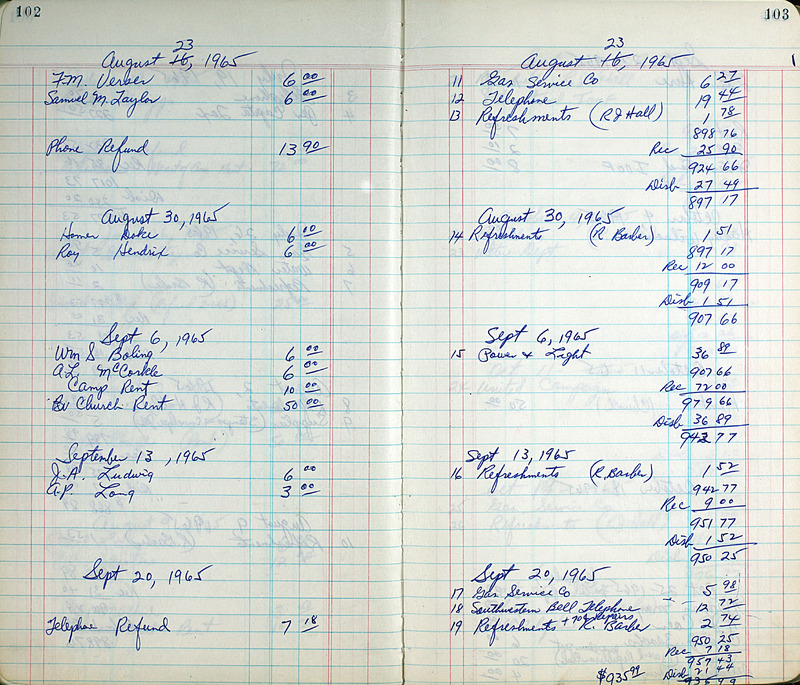 102
August 16, 1965
23
F.M. Verser 6 00
Samuel M. Taylor 6 00
Phone Refund 13 90
August 30, 1965
Homer Doke 6 00
Roy Hendrix 6 00
Sept 6, 1965
Wm S Boling 6 00
A.L. McCorkle 6 00
Camp Rent 10 00
Church Rent 50 00
September 13, 1965
J.A. Ludwig 6 00
A.P. Long 3 00
Sept 20, 1965
Telephone Refund 7 18
103
1
August 16, 1965
23
11 Gas Service Co 6 27
12 Telephone 19 44
13 Refreshments (R J Hall) 1 78
898 76
Rec 25 90
924 66
Disb 27 49
897 17
August 30, 1965
14 Refreshments (R Barber) 1 51
897 17
Rec 12 00
909 17
Disb 1 51
907 66
Sept 6, 1965
15 Power & Light 36 89
907 66
Rec 72 00
979 66
Disb 36 89
942 77
Sept 13, 1965
16 Refreshments (R. Barber) 1 52
942 77
Rec 9 00
951 77
Disb 1 52
950 25
Sept 20, 1965
17 Gas Service Co 5 98
18 Southwestern Bell Telephone 12 72
19 Refreshments + R. Barber 2 74
950 25
Rec 7 18
957 43
Disb 21 44
$935 99
935 99